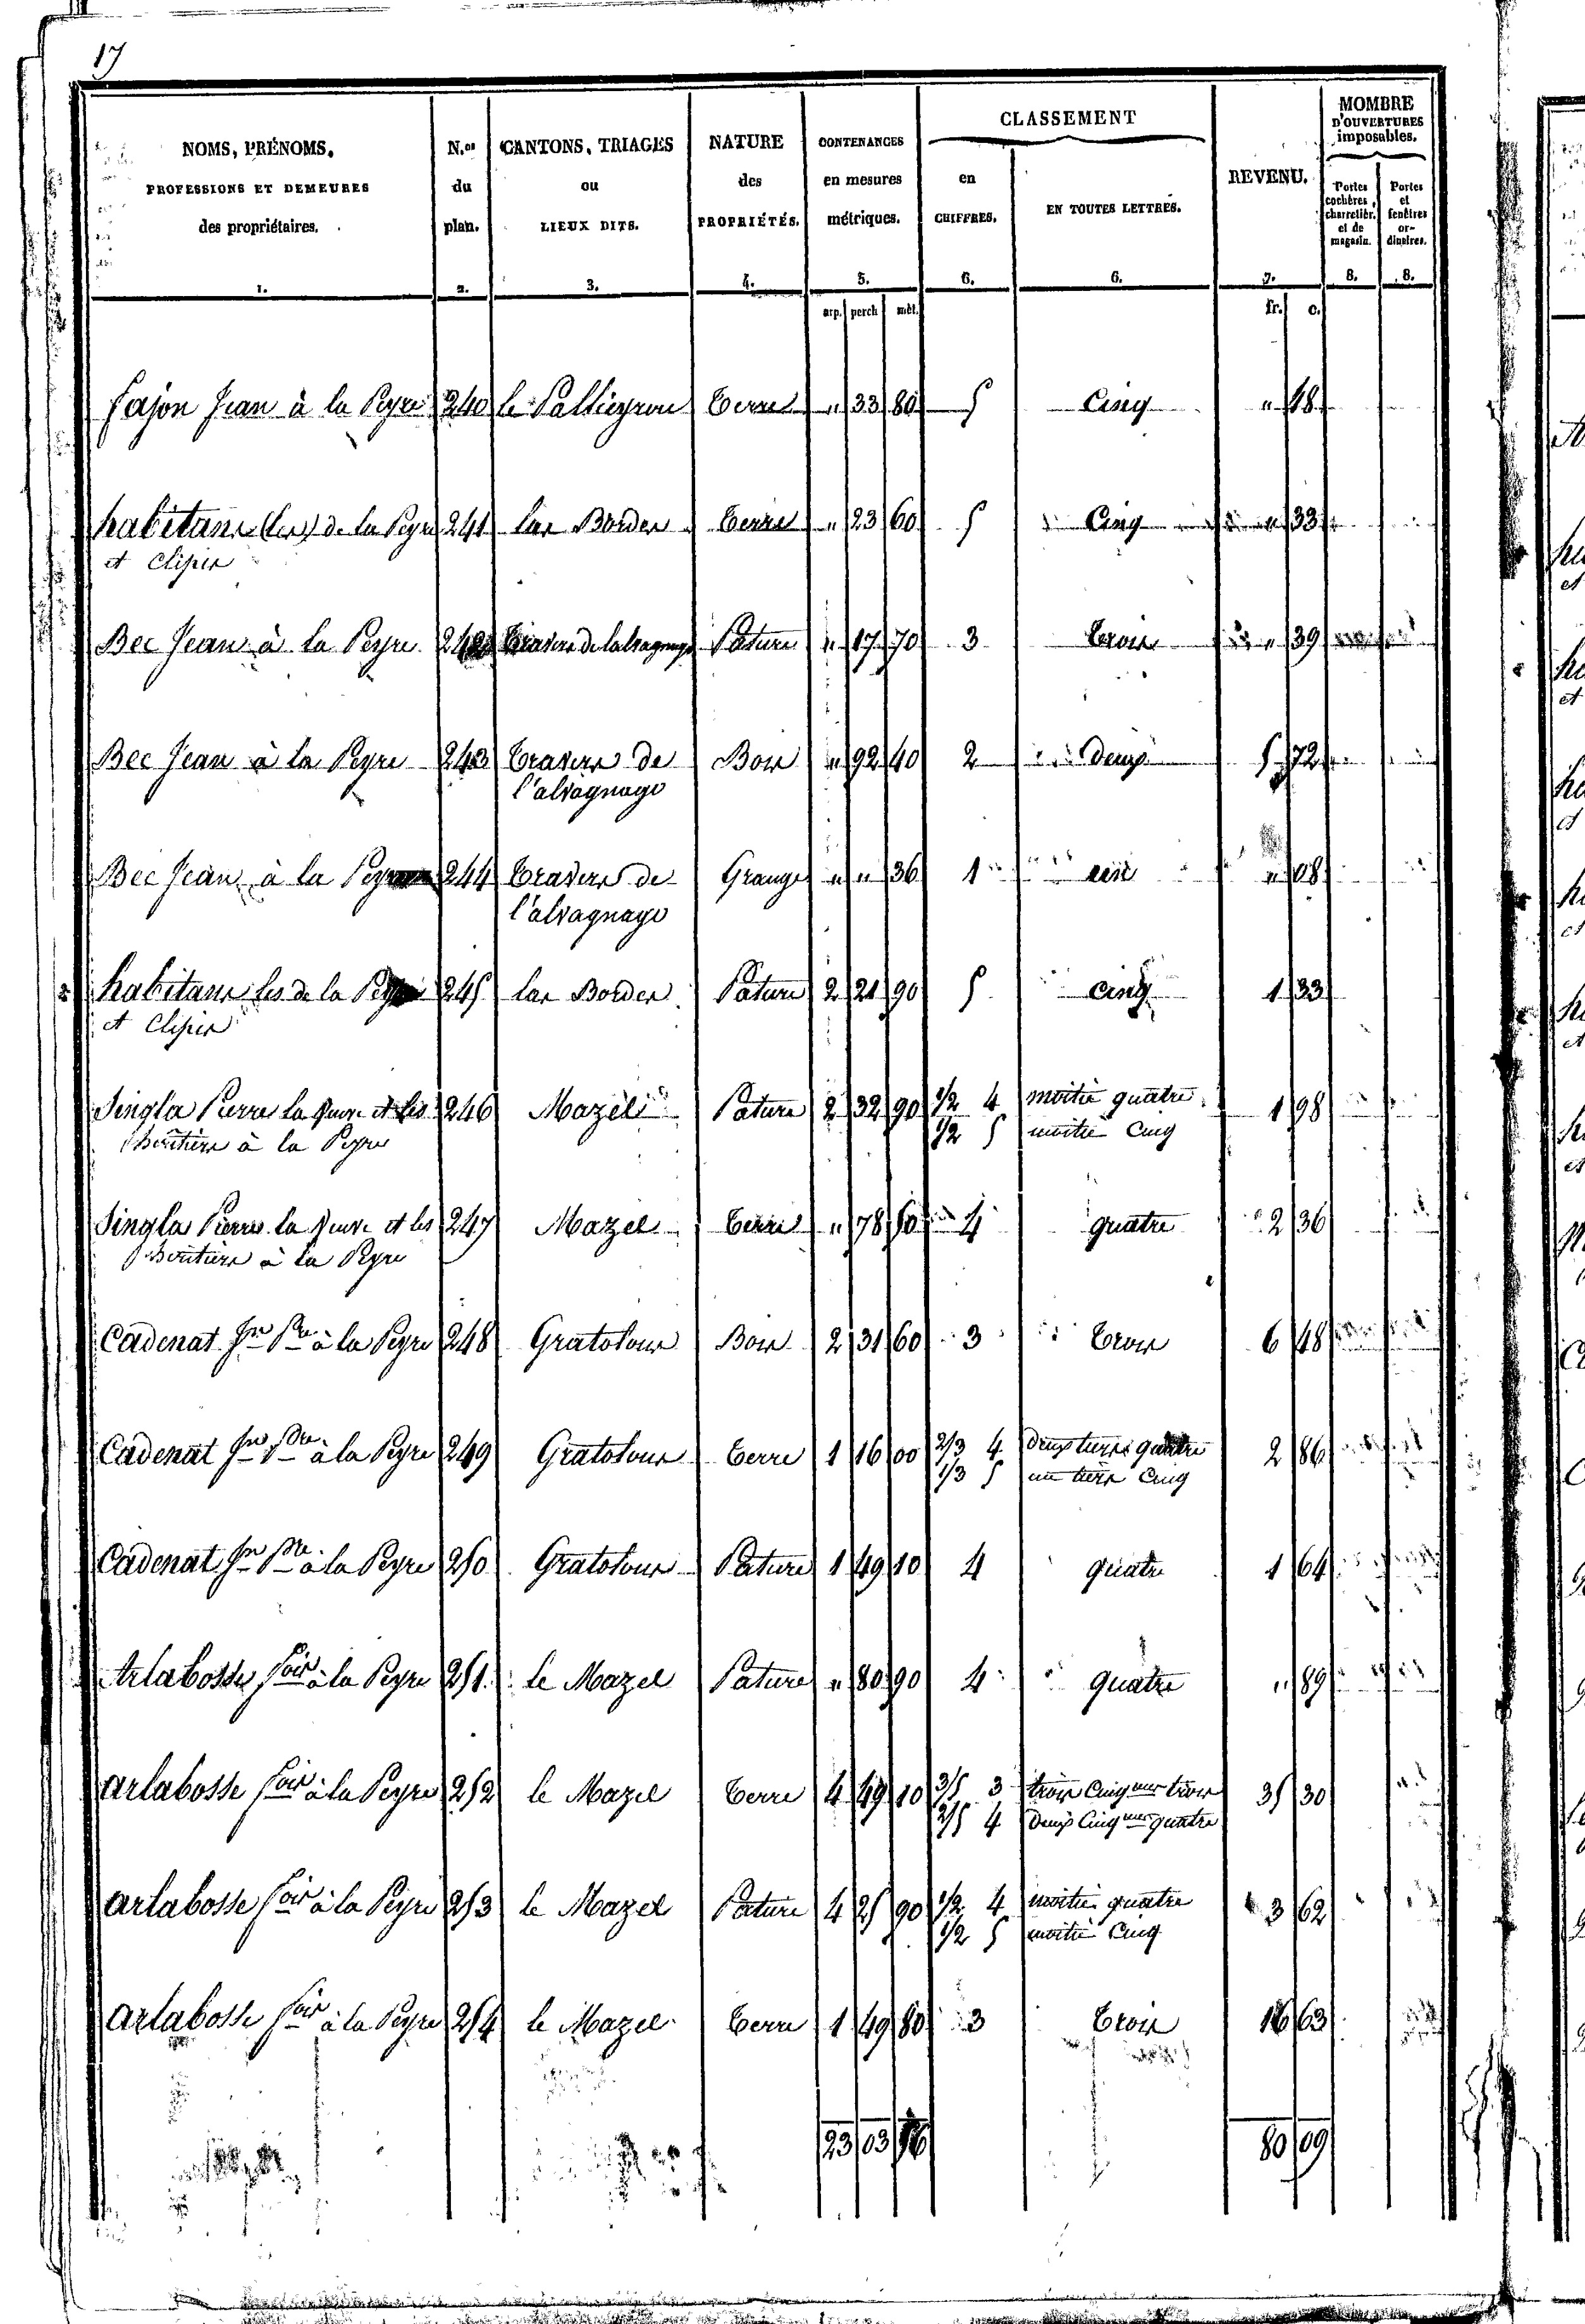 17
NOMS, PRÉNOMS, PROFESSIONS ET DEMEURES des propriétaires. 1.
N.os du plan. 2.
CANTONS, TRIAGES ou LIEUX DITS. 3.
NATURE des PROPRIÉTÉS. 4.
CONTENANCES en mesures métriques. 5.
CLASSEMENT
en CHIFFRES. 6.
EN TOUTES LETTRES. 6.
REVENU. 7.
MOMBRE D'OUVERTURES imposables.
Portes cochères, charretièr. et de magasin. 8.
Portes et fenêtres or-dinaires. 8.
arp. perch mèt. fr. c.
fajon Jean à la Peyre 240 le Terre " 33 80 5 Cinq " 48
habitans (les) de la Peyre 241 las Bordes Terre " 23 60 5 Cinq " 33
et Clipies
Bec Jean à la Peyre 242 Travers de Pature " 17 70 3 trois " 39
Bec Jean à la Peyre 243 Travers de Bois " 92 40 2 deux 5 72
l'alvagnage
Bec Jean à la Peyre 244 Travers de Grange " " 36 1 un " 08
l'alvagnage
habitans les de la Peyre 245 las Bordes Pature 2 21 90 5 cinq 1 33
et Clipies
Singla Pierre la Veuve et les 246 Mazel Pature 2 32 90 1/2 4 moitié quatre 1 98
héritiers à la Peyre 1/2 5 moitié Cinq
Singla Pierre la Veuve et les 247 Mazel Terre " 78 50 4 quatre 2 36
héritiers à la Peyre
Cadenat Jn Pre à la Peyre 248 Gratoloup Bois 2 31 60 3 trois 6 48
Cadenat Jn Pre à la Peyre 249 Gratoloup terre 1 16 00 2/3 4 deux tiers quatre 2 86
1/3 5 un tiers Cinq
Cadenat Jn Pre à la Peyre 250 Gratoloup Pature 1 49 10 4 quatre 1 64
Arlabosse à la Peyre 251 le Mazel Pature " 80 90 4 quatre " 89
arlabosse à la Peyre 252 le Mazel terre 4 49 10 3/5 3 trois Cinqmes trois 35 30
2/5 4 Deux Cinqmes quatre
arlabosse à la Peyre 253 le Mazel Pature 4 25 90 1/2 4 moitié quatre 3 62
1/2 5 moitié Cinq
arlabosse à la Peyre 254 le Mazel terre 1 49 80 3 trois 16 63
23 03 56 80 09